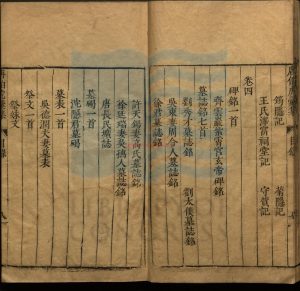 筠隱記 菊隱記
王氏澤富祠堂記 守質記
卷四
碑銘一首
齊雲巖紫霄宮玄帝碑銘
墓誌銘七首
劉秀才墓誌銘 劉太僕墓誌銘
吳東妻周令人墓誌銘
徐君墓誌銘
許天錫妻高氏墓誌銘
徐廷瑞妻吳孺人墓誌銘
唐長民壙誌
墓碣一首
沈隱君墓碣
墓表一首
吳德潤夫妻墓表
祭文一首
祭妹文